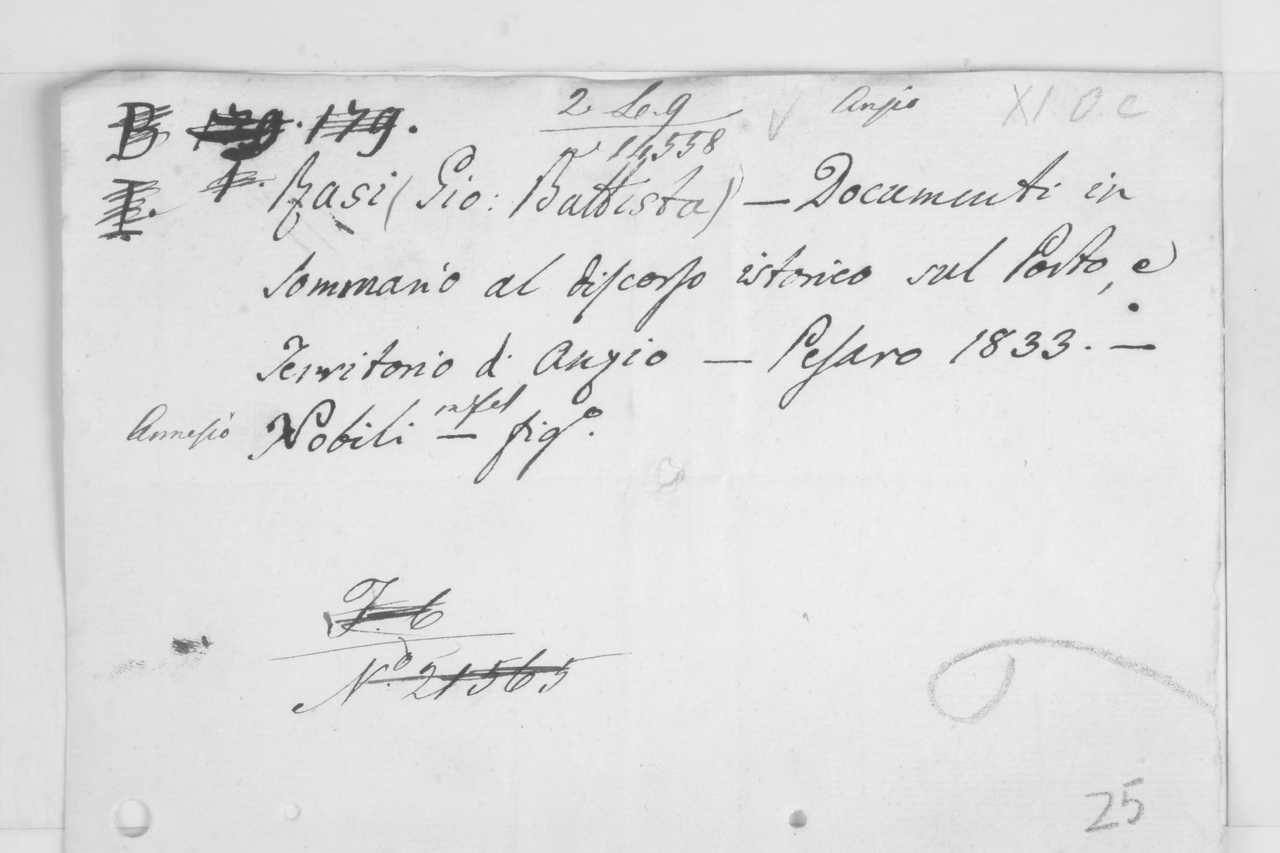 B 179. 179.
2 Le. 9
14558
Anzio
XI O. C
I. 1.
Rasi (Gio: Battista) — Documenti in
Sommario al discorso istorico sul Porto, e
Territorio di Anzio — Pesaro 1833. —
Annesio Nobili — fig.º
T. 6
N.º 21565
25